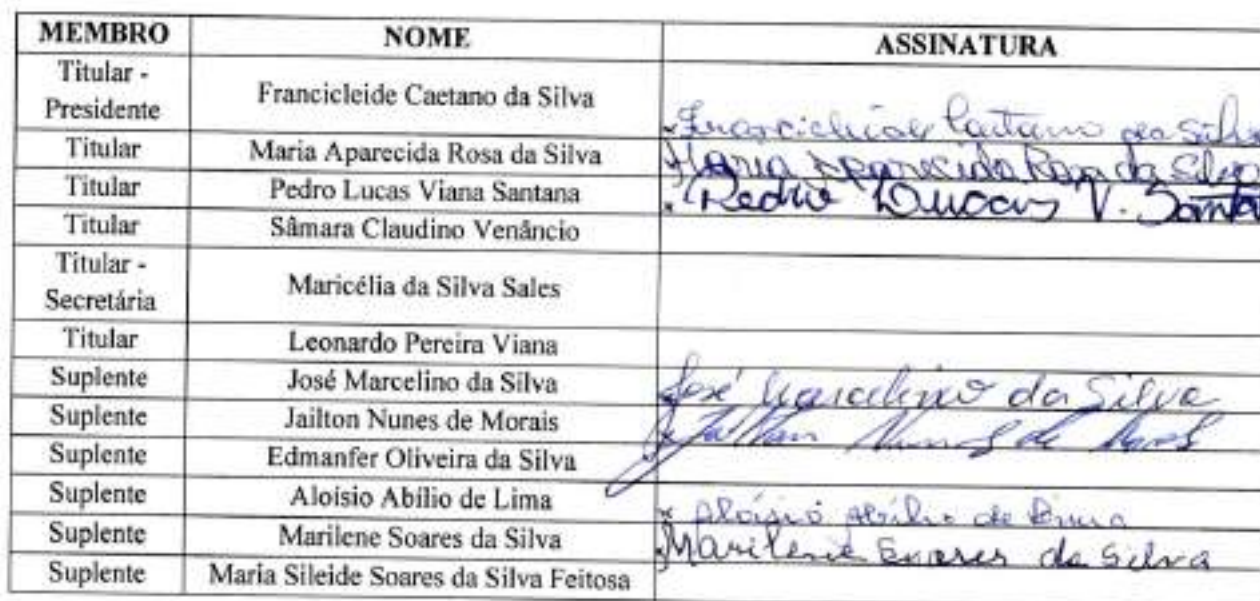 MEMBRO NOME ASSINATURA
Titular -
Presidente Francicleide Caetano da Silva Francicleide Caetano da Silva
Titular Maria Aparecida Rosa da Silva Maria Aparecida Rosa da Silva
Titular Pedro Lucas Viana Santana Pedro Lucas V. Santa
Titular Sâmara Claudino Venâncio
Titular -
Secretária Maricélia da Silva Sales
Titular Leonardo Pereira Viana
Suplente José Marcelino da Silva José Marcelino da Silva
Suplente Jailton Nunes de Morais Jailton Nunes de Morais
Suplente Edmanfer Oliveira da Silva
Suplente Aloisio Abílio de Lima Aloísio Abílio de Lima
Suplente Marilene Soares da Silva Marilene Soares da Silva
Suplente Maria Sileide Soares da Silva Feitosa